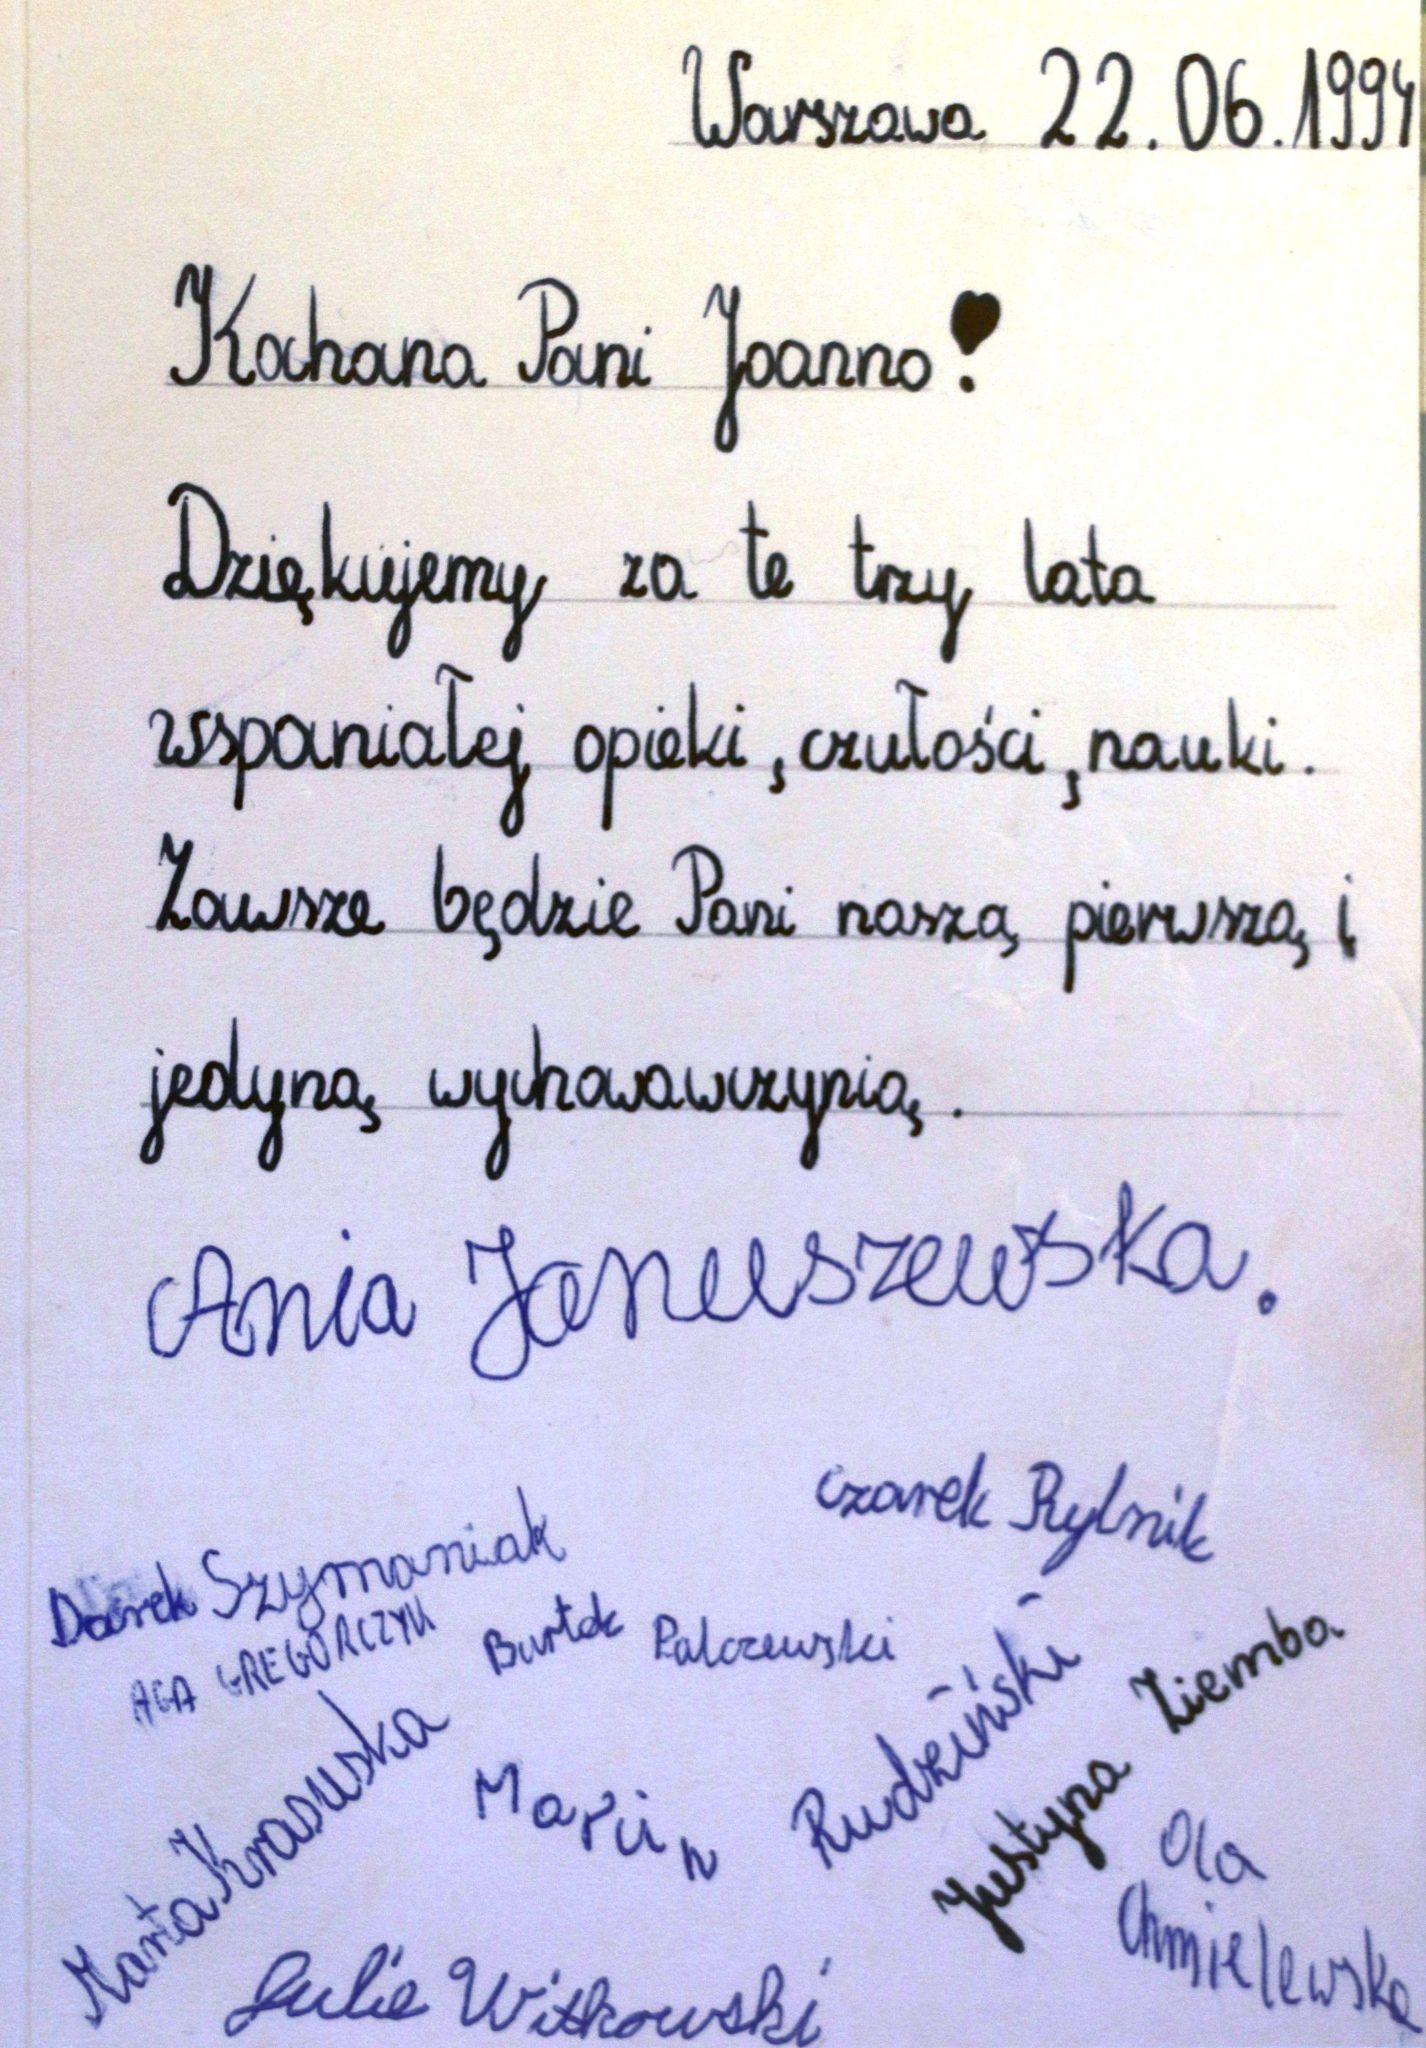 Warszawa 22.06.1994
Kochana Pani Joanno!
Dziękujemy za te trzy lata
wspaniałej opieki, czułości, nauki.
Zawsze będzie Pani naszą pierwszą i
jedyną wychowawczynią.
Ania Januszewska.
Czarek Rylnik
Darek Szymaniak
AGA GREGORCZYK
Bartek Palczewski
Marta Krasuska
Marcin Rudziński
Justyna Ziemba
Ola
Chmielewska
Witkowski